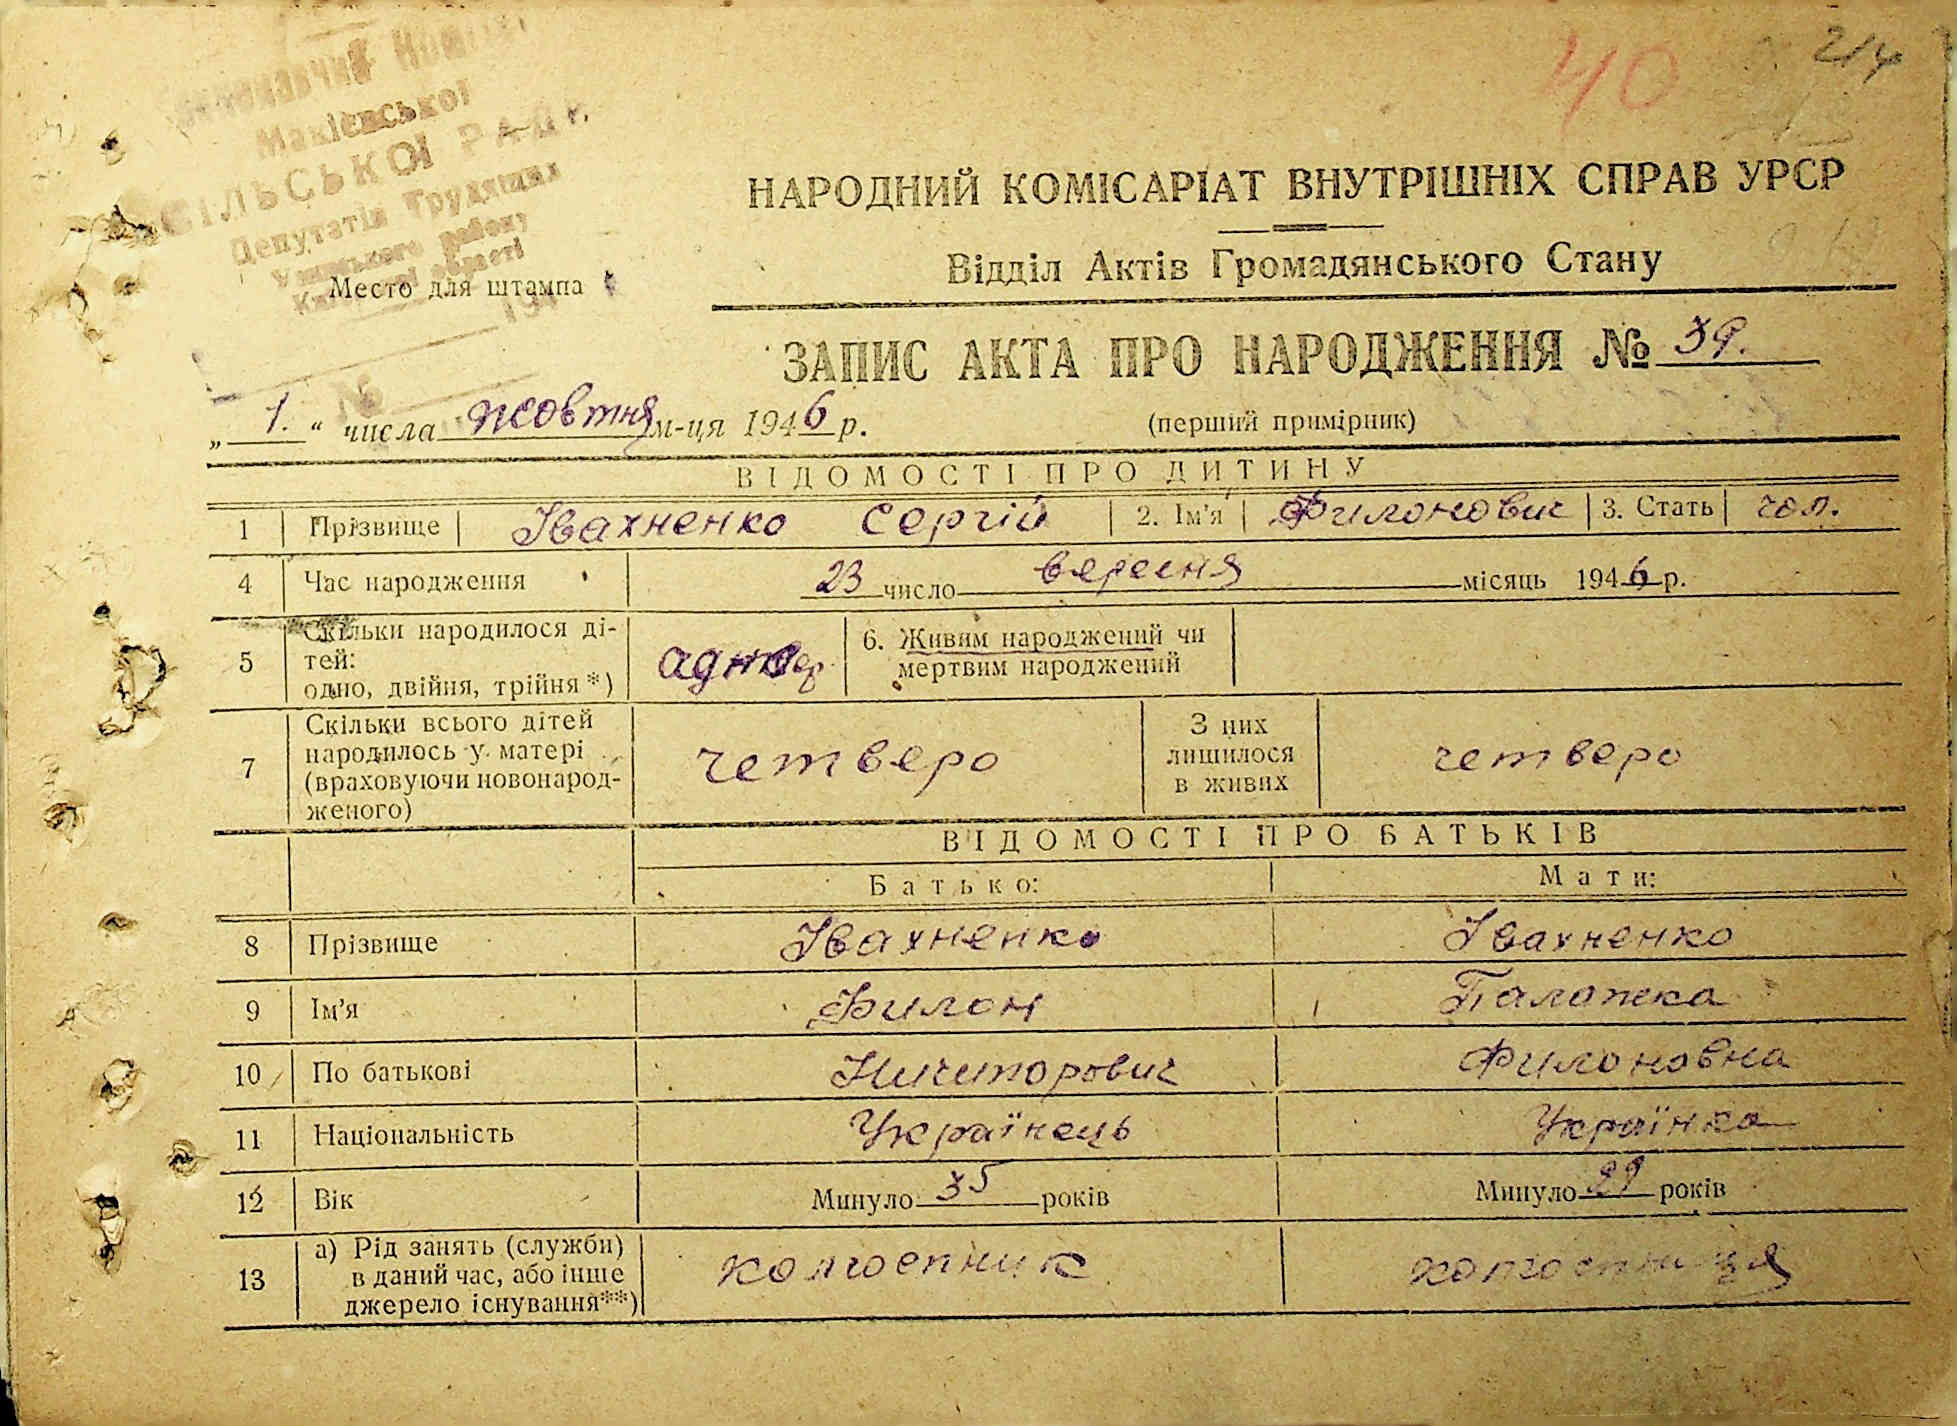 40 214
Макієвської
СІЛЬСЬКОЇ РАДИ
Депутатів Трудящих
району
області
Место для штампа
194
№
НАРОДНИЙ КОМІСАРІАТ ВНУТРІШНІХ СПРАВ УРСР
Відділ Актів Громадянського Стану
ЗАПИС АКТА ПРО НАРОДЖЕННЯ № 39.
„ 1. “ числа жовтня м-ця 1946 р. (перший примірник)
ВІДОМОСТІ ПРО ДИТИНУ
1 Прізвище Івахненко Сергій 2. Ім'я Филонович 3. Стать чол.
4 Час народження 23 число вересня місяць 1946 р.
5 Скільки народилося ді-
тей:
одно, двійня, трійня *)
6. Живим народжений чи
мертвим народжений
7 Скільки всього дітей
народилось у матері
(враховуючи новонарод-
женого)
четверо
З них
лишилося
в живих
четверо
ВІДОМОСТІ ПРО БАТЬКІВ
Батько: Мати:
8 Прізвище Івахненко Івахненко
9 Ім'я Филон Палажка
10 По батькові Ничипорович Филоновна
11 Національність Українець Українка
12 Вік Минуло 35 років Минуло 29 років
13 а) Рід занять (служби)
в даний час, або інше
джерело існування**)
колгоспник колгоспниця